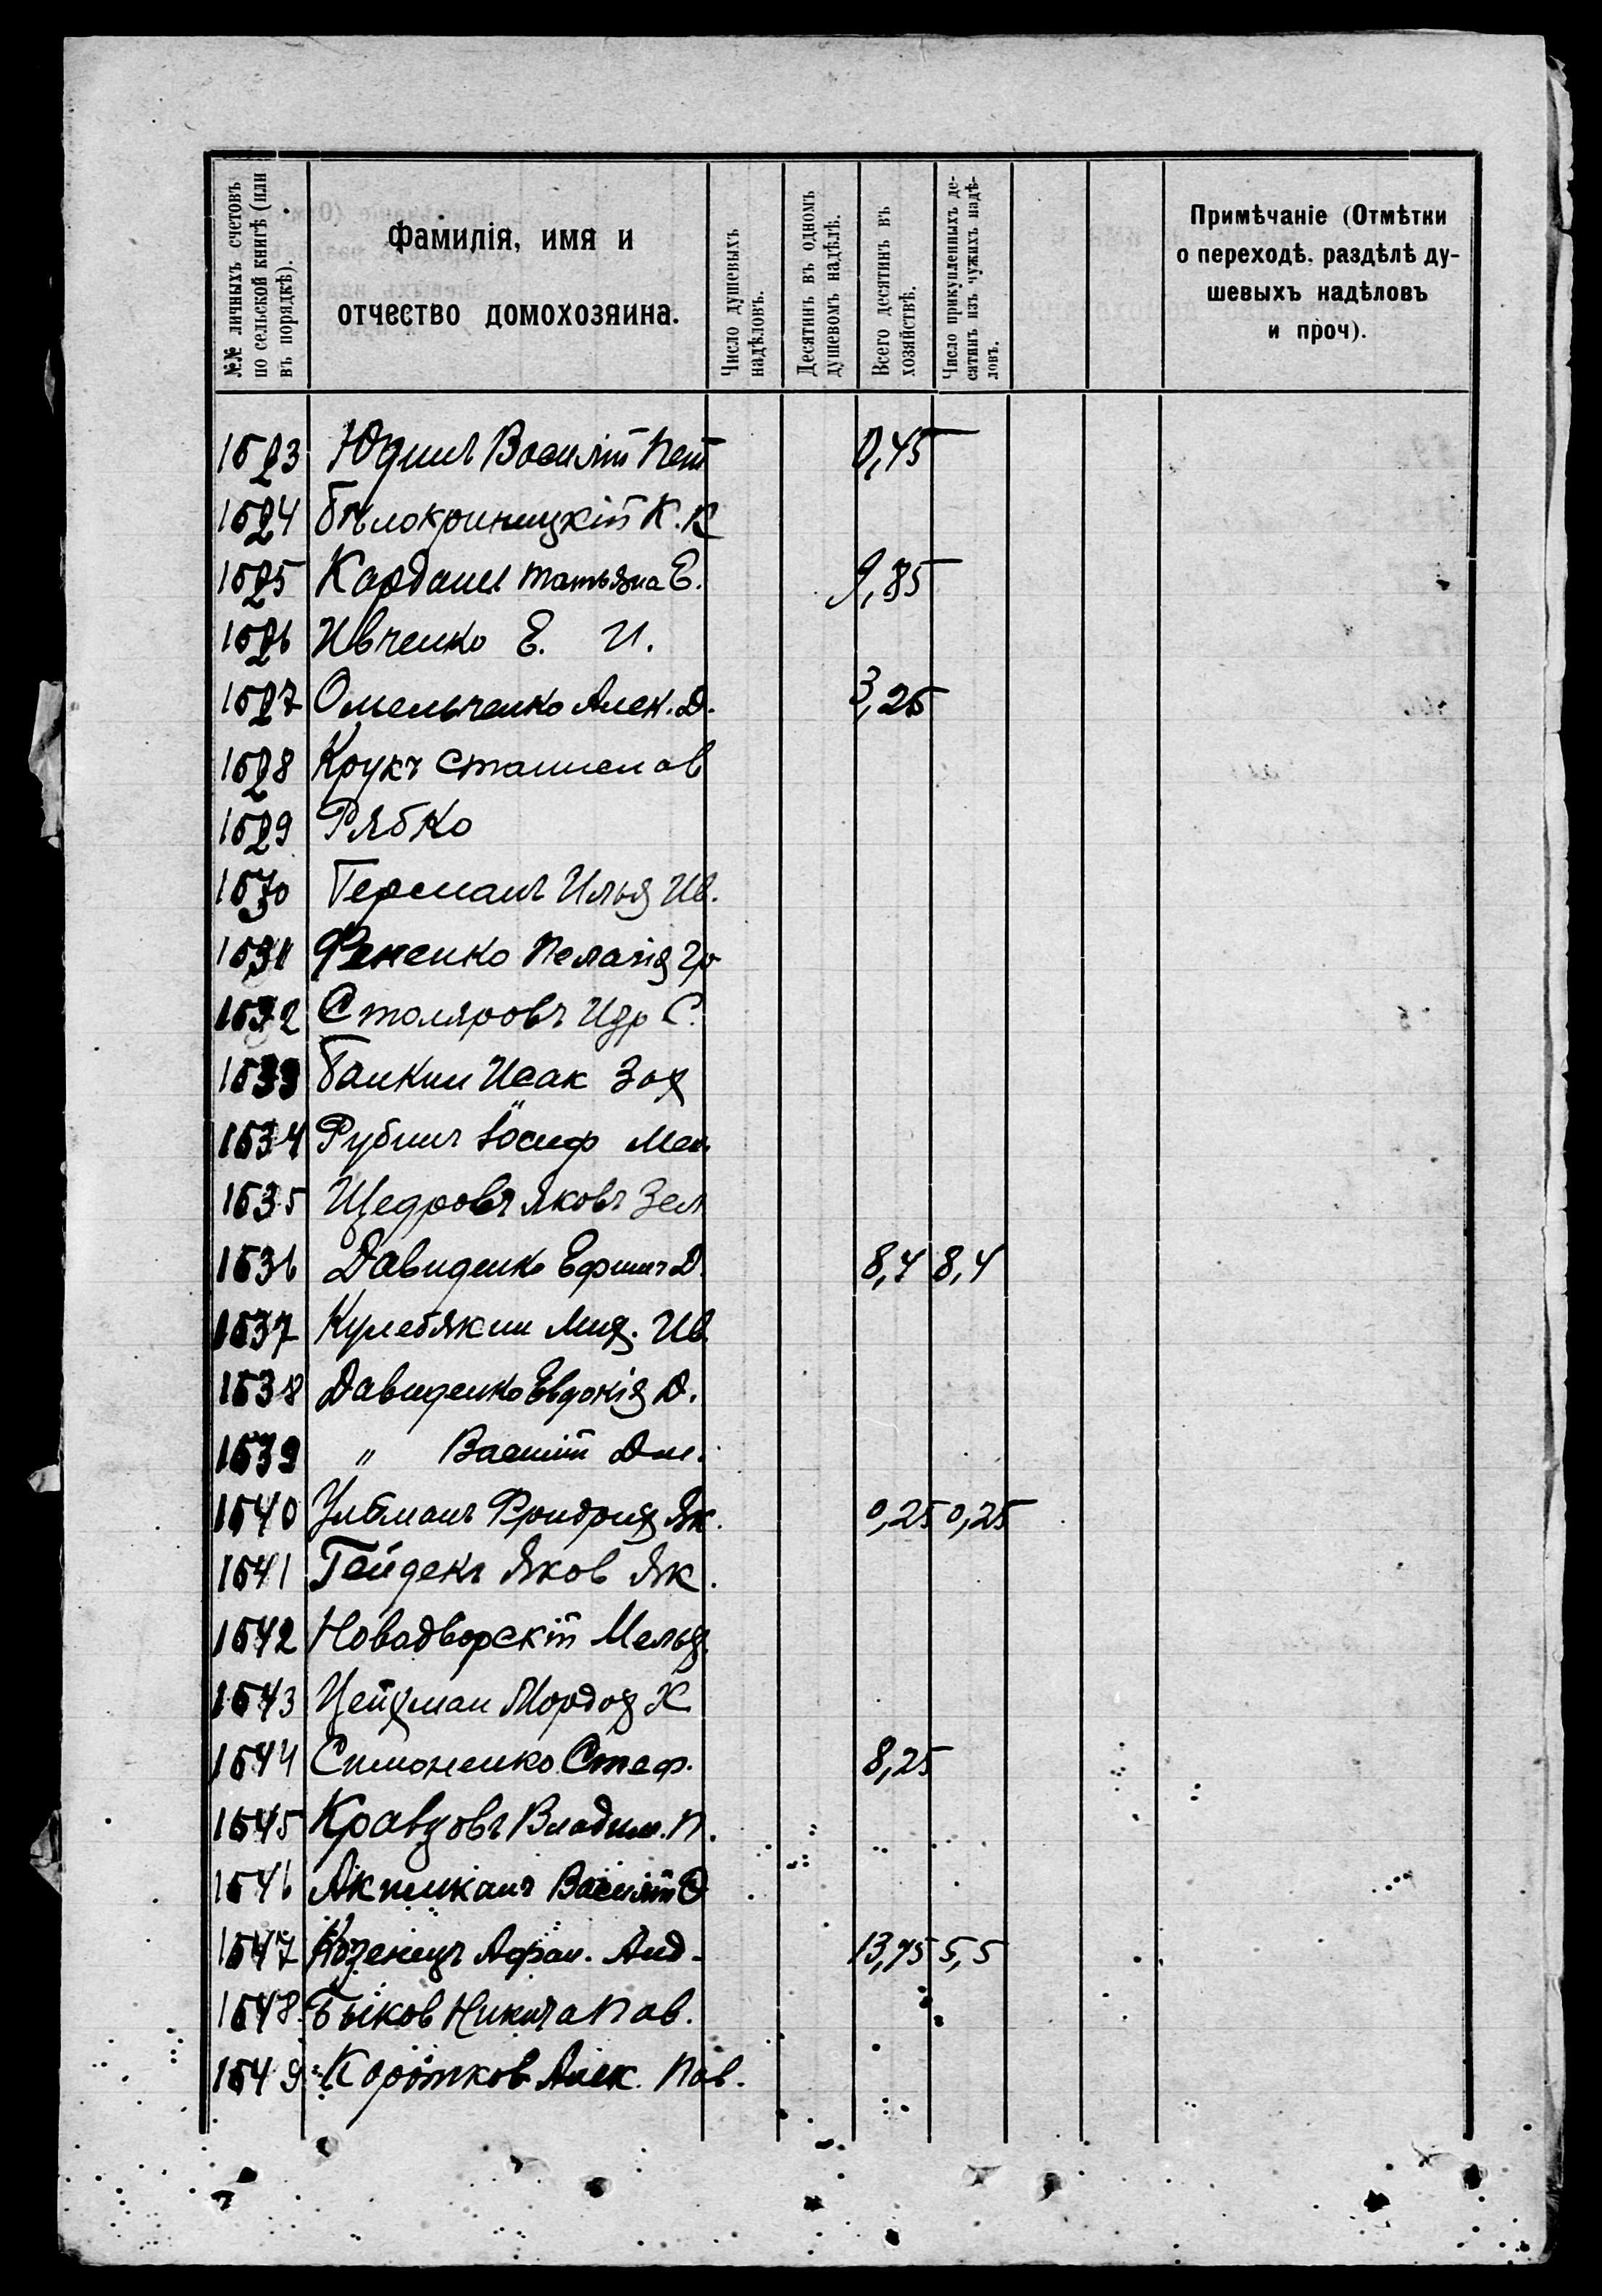 №№ личныхъ счетовъ
по сельской книгѣ (или
въ порядкѣ).
Фамилія, имя и
отчество домохозяина.
Число душевыхъ
надѣловъ.
Десятинъ въ одномъ
душевомъ надѣлѣ.
Всего десятинъ въ
хозяйствѣ.
Число прикупленныхъ де-
сятинъ изъ чужихъ надѣ-
ловъ.
Примѣчаніе (Отмѣтки
о переходѣ, раздѣлѣ ду-
шевыхъ надѣловъ
и проч).
1523 Юдинъ Василій Пет 0,45
1524 Бѣлокриницкій К. К
1525 Кардаш Татьяна Е. 9,85
1526 Ивченко Е. И.
1527 Омельченко Алек. Д. 3,25
1528 Крукъ Станислав
1529 Рябко
1530 Германъ Илья Ив.
1531 Фененко Пелагія Гр
1532 Столяровъ С.
1533 Банкин Исак Зах
1534 Рубинъ Іосиф Мен
1535 Щедровъ Яковъ Зел
1536 Давиденко Ефимъ Д. 8,4 8,4
1537 Кулебякин Мих. Ив.
1538 Давиденко Евдокія Д.
1539 " Василій Дм.
1540 Улбманъ Фридрих Як. 0,25 0,25
1541 Гейдекъ Яков Як.
1542 Новадворскій Мельх.
1543 Цейхман Мордох Х
1544 Симоненко Стеф. 8,25
1545 Кравцовъ Владим. П.
1546 Василій
1547 Козенецъ Афан. Анд. 13,75 5,5
1548 Быков Никита Пав.
1549 Коротков Алек. Пав.